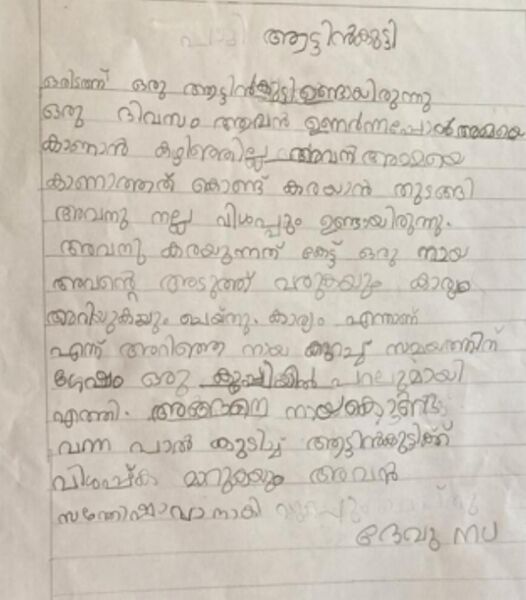 ആട്ടിൻകുട്ടി
ഒരിടത്ത് ഒരു ആട്ടിൻകുട്ടി ഉണ്ടായിരുന്നു
ഒരു ദിവസം അവൻ ഉണർന്നപ്പോൾ അമ്മയെ
കാണാൻ കഴിഞ്ഞില്ല അവൻ അമ്മയെ
കാണാത്തത് കൊണ്ട് കരയാൻ തുടങ്ങി
അവനു നല്ല വിശപ്പും ഉണ്ടായിരുന്നു.
അവനു കരയുന്നത് കേട്ട് ഒരു നായ
അവന്റെ അടുത്ത് വരുകയും കാര്യം
അറിയുകയും ചെയ്തു. കാര്യം എന്താണ്
എന്ന് അറിഞ്ഞ നായ കുറച്ച് സമയത്തിന്
ശേഷം ഒരു കുപ്പിയിൽ പാലുമായി
എത്തി. അങ്ങനെ നായകൊണ്ടു
വന്ന പാൽ കുടിച്ച് ആട്ടിൻകുട്ടിക്ക്
വിശപ്പ് മാറുകയും അവൻ
സന്തോഷവാനാകി
ദേവു